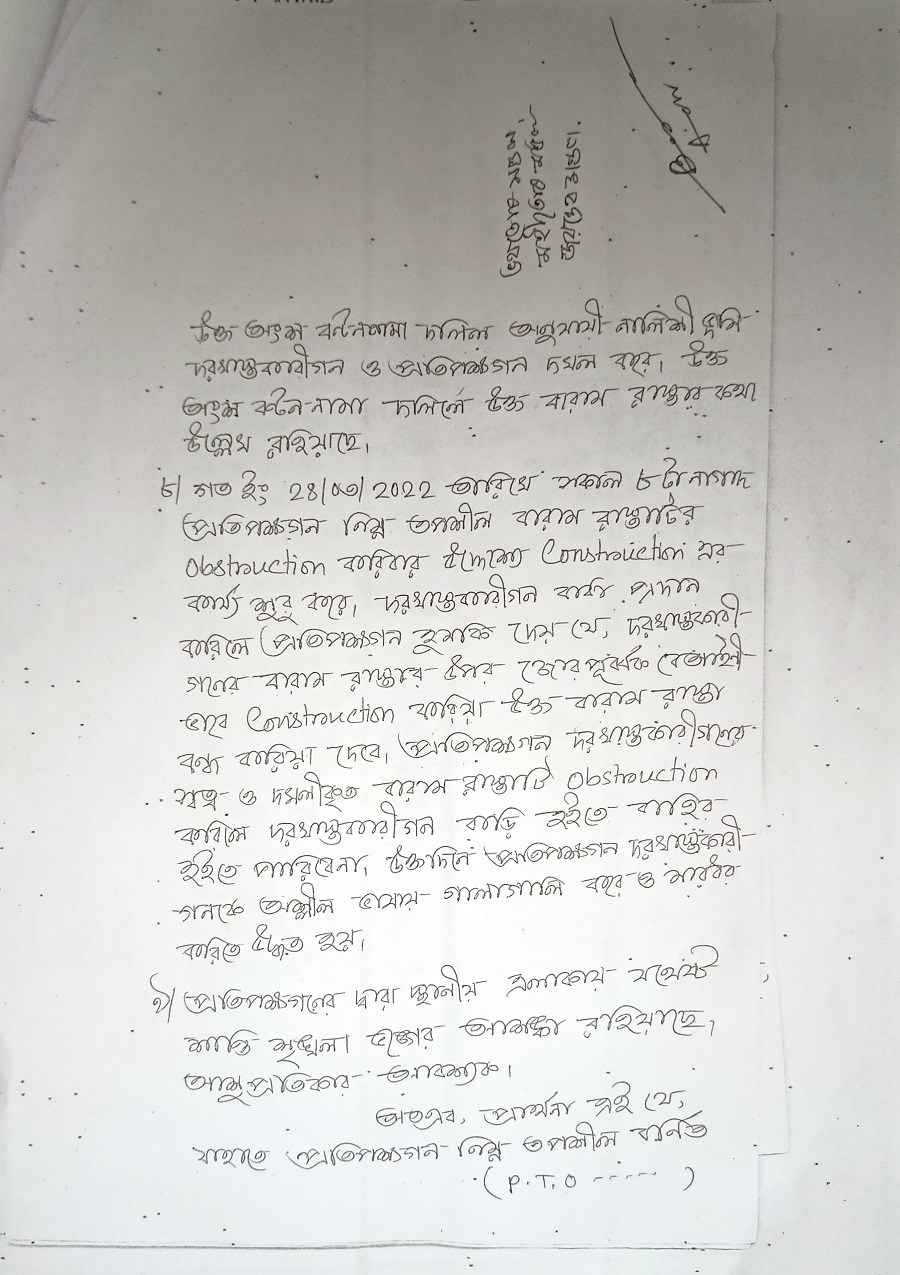 উক্ত অংশ বন্টননামা দলিল অনুযায়ী নালিশী ভূমি
দরখাস্তকারীগন ও প্রতিপক্ষগন দখল করে। উক্ত
অংশ বন্টন নামা দলিলে উক্ত বারাম রাস্তার কথা
উল্লেখ রহিয়াছে।
৮/ গত ইং 28/07/2022 তারিখে সকাল ৮ টা নাগাদ
প্রতিপক্ষগন নিম্ন তপশীল বারাম রাস্তাটির
Obstruction করিবার উদ্দেশ্যে Construction এর
কার্য্য শুরু করে। দরখাস্তকারীগন বাধা প্রদান
করিলে প্রতিপক্ষগন হুমকি দেয় যে, দরখাস্তকারী
গনের বারাম রাস্তার উপর জোরপূর্ব্বক বেআইনী
ভাবে Construction করিয়া উক্ত বারাম রাস্তা
বন্ধ করিয়া দেবে। প্রতিপক্ষগন দরখাস্তকারীগনের
স্বত্ব ও দখলীকৃত বারাম রাস্তাটি Obstruction
করিলে দরখাস্তকারীগন বাড়ি হইতে বাহির
হইতে পারিবেনা। উক্তদিনে প্রতিপক্ষগন দরখাস্তকারী
গনকে অশ্লীল ভাষায় গালাগালি করে ও মারধর
করিতে উদ্ধত হয়।
৯/ প্রতিপক্ষগনের দ্বারা স্থানীয় এলাকায় যথেষ্ট
শান্তি শৃঙ্খলা ভঙ্গের আশঙ্কা রহিয়াছে।
আশু প্রতিকার আবশ্যক।
অতএব, প্রার্থনা এই যে,
যাহাতে প্রতিপক্ষগন নিম্ন তপশীল বর্নিত
(P.T.O -----)